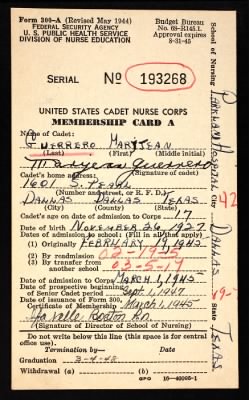 Form 300-A (Revised May 1944)
FEDERAL SECURITY AGENCY
U. S. PUBLIC HEALTH SERVICE
DIVISION OF NURSE EDUCATION
Budget Bureau
No. 68-R145.1.
Approval expires
8-31-45
SERIAL No 193268
UNITED STATES CADET NURSE CORPS
MEMBERSHIP CARD A
Name of Cadet:
Guerrero Mary Jean
(Last) (First) (Middle initial)
Mary Jean Guerrero
Cadet's home address: (Signature of cadet)
1601 S. Pearl
(Number and street, or R. F. D.)
Dallas Dallas Texas
(City) (County) (State)
Cadet's age on date of admission to Corps 17
Date of birth November 26, 1927
Dates of admission to school: (Fill in all that apply)
(1) Originally February 19, 1945
(2) By readmission
(3) By transfer from
another school
Date of admission to Corps March 1, 1945
Prospective date of beginning
Senior Cadet period Sept. 1, 1947
Date of issuance of Form 300,
Certificate of Membership March 1, 1945
(Signature of Director of School of Nursing)
Do not write below this line (this space is for central
office use).
Termination by— Date
Graduation 3-4-48
Withdrawal (a) (b)
GPO 16-40095-1
School of Nursing Parkland Hospital City Dallas State Texas
42